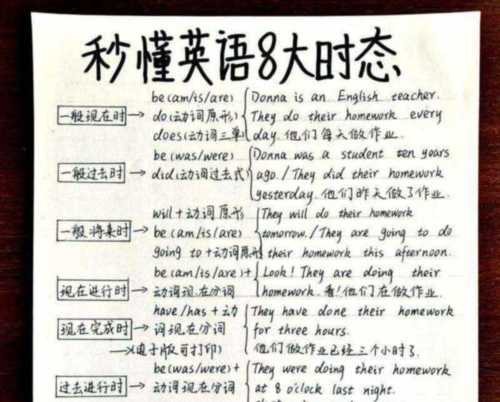 秒懂英语8大时态
一般现在时
be(am/is/are)
do(动词原形)
does(动词三单)
Donna is an English teacher.
They do their homework every
day. 他们每天做作业.
一般过去时
be(was/were)
did(动词过去式)
Donna was a student ten years
ago./They did their homework
yesterday. 他们昨天做了作业.
一般将来时
will+动词原形
be(am/is/are)
going to+动词原形
They will do their homework
tomorrow./They are going to do
their homework this afternoon.
现在进行时
be(am/is/are)+
动词现在分词
Look! They are doing their
homework. 看!他们在做作业.
现在完成时
have/has+动
词现在分词
→(电子版可打印)
They have done their homework
for three hours.
他们做作业已经三个小时了.
过去进行时
be(was/were)+
动词现在分词
They were doing their homework
at 8 o'clock last night.